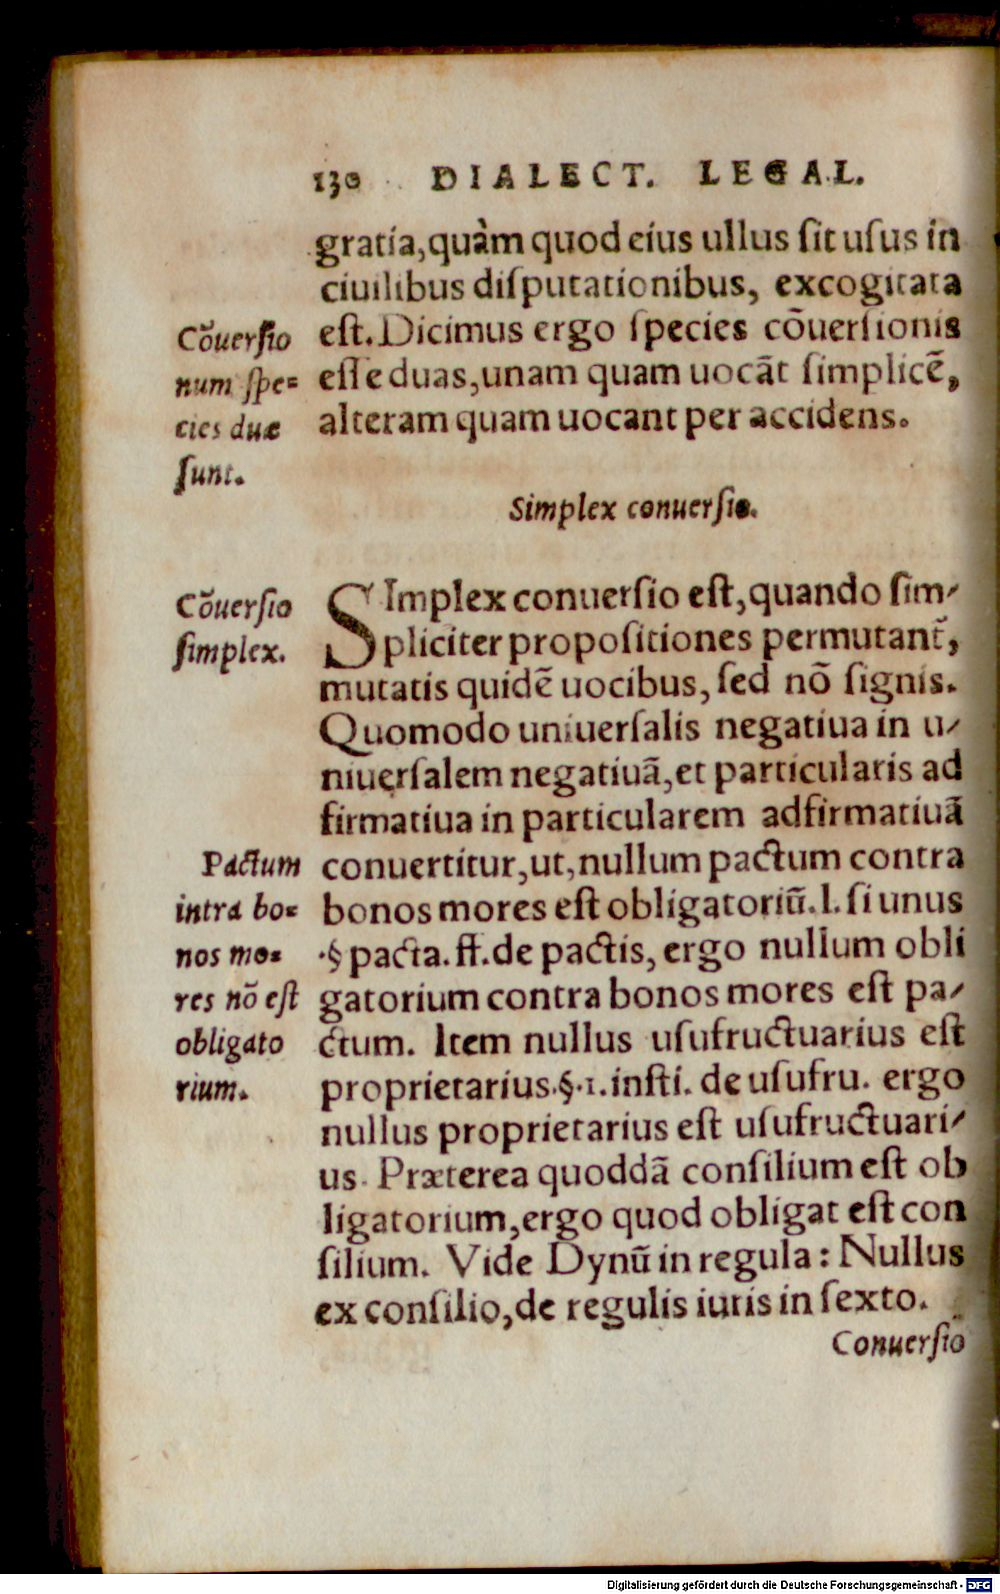 130 DIALECT. LEGAL.
gratia,quàm quod eius ullus ſit uſus in
ciuilibus diſputationibus, excogitata
eſt. Dicimus ergo ſpecies cōuerſionis
eſſe duas, unam quam uocāt ſimplicē,
alteram quam uocant per accidens.
Cōuerſio
num ſpe=
cies duæ
ſunt.
Simplex conuerſio.
Cōuerſio
ſimplex.
SImplex conuerſio eſt, quando ſim-
pliciter propoſitiones permutant̄,
mutatis quidē uocibus, ſed nō ſignis.
Quomodo uniuerſalis negatiua in u-
niuerſalem negatiuā, et particularis ad
firmatiua in particularem adfirmatiuā
conuertitur, ut, nullum pactum contra
bonos mores eſt obligatoriū. l. ſi unus
.§ pacta. ff. de pactis, ergo nullum obli
gatorium contra bonos mores eſt pa-
ctum. Item nullus uſufructuarius eſt
proprietarius.§.1. inſti. de uſufru. ergo
nullus proprietarius eſt uſufructuari-
us. Præterea quoddā conſilium eſt ob
ligatorium, ergo quod obligat eſt con
ſilium. Vide Dynū in regula: Nullus
ex conſilio, de regulis iuris in ſexto.
Pactum
intra bo=
nos mo=
res nō eſt
obligato
rium.
Conuerſio
Digitalisierung gefördert durch die Deutsche Forschungsgemeinschaft - DFG